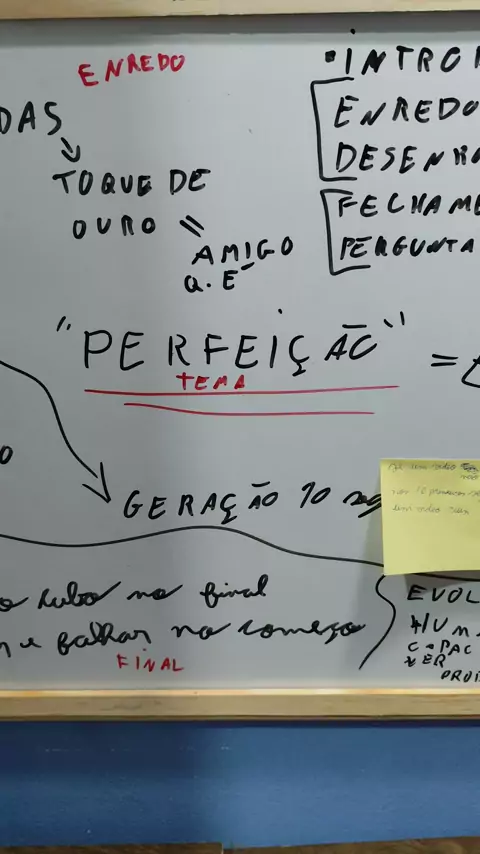 ENREDO
DAS
TOQUE DE
OURO =
AMIGO
Q.E
• INTROD
ENREDO
DESENHA
FECHAME
PERGUNTA
"PERFEIÇÃO"
TEMA
=
O
GERAÇÃO 10 seg
nas 10 primeiras
o lubo no final
e falhar no começo
FINAL
EVOL
HUM
CAPAC
SER